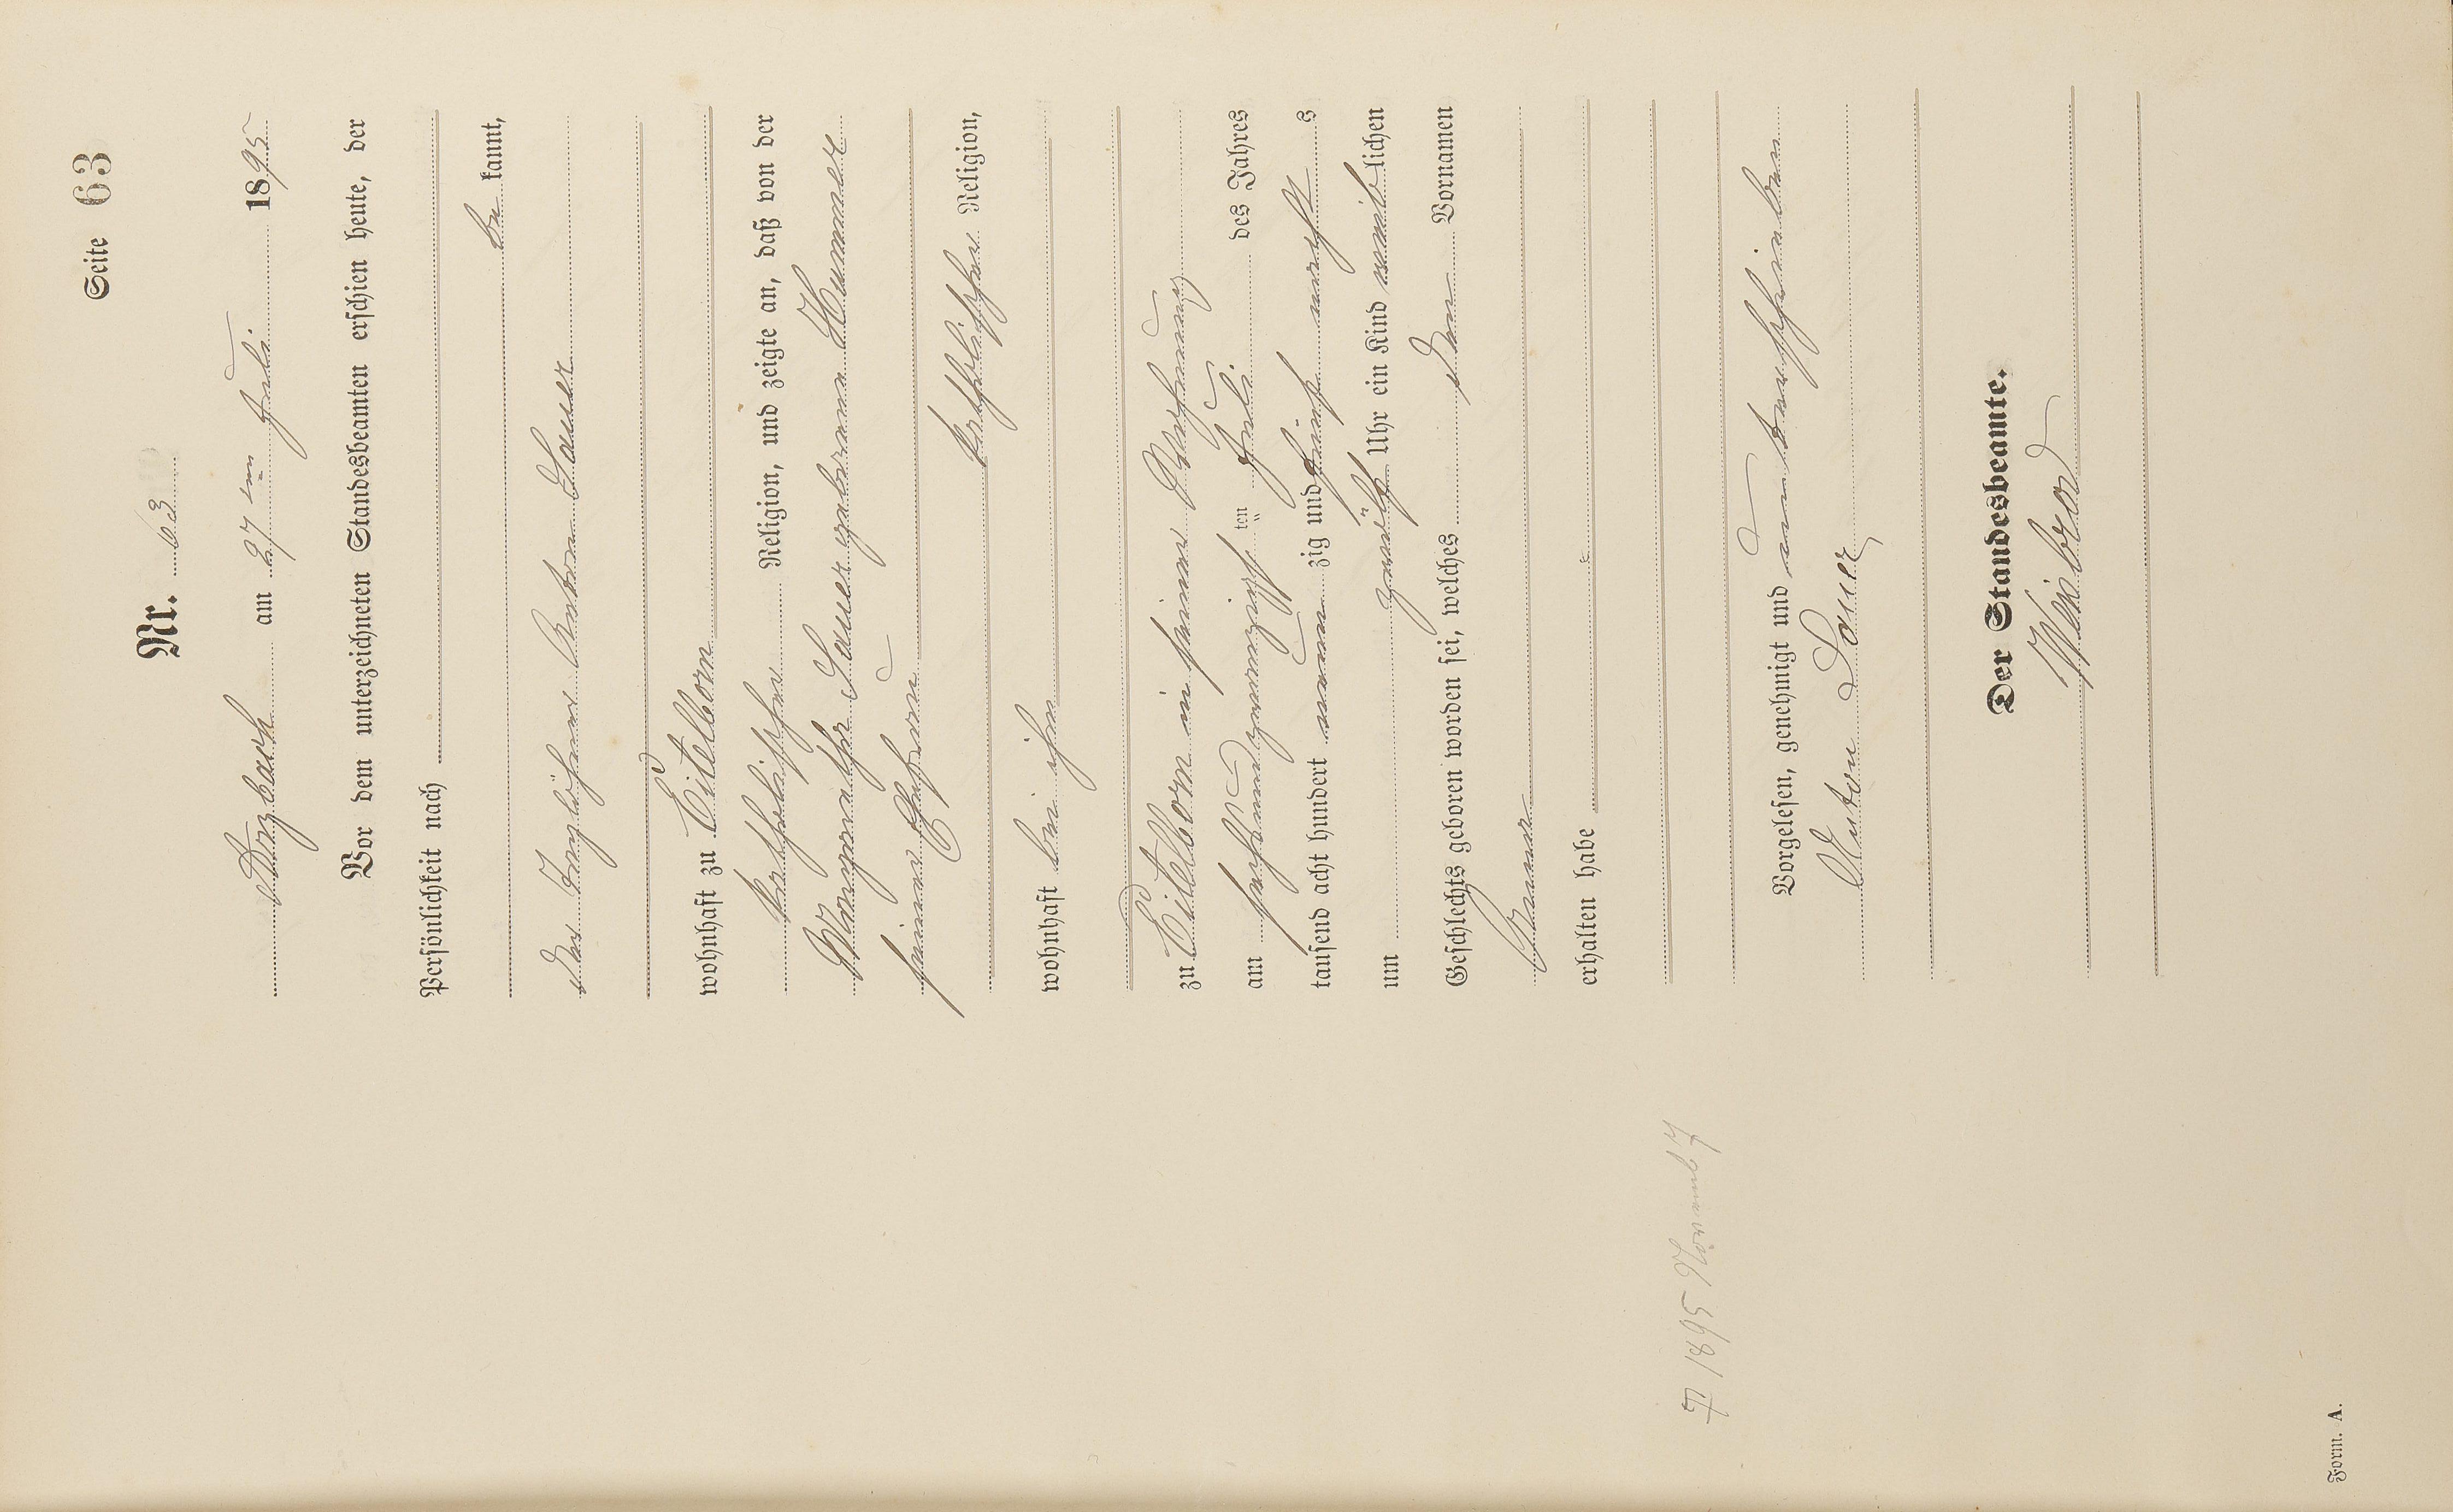 Seite 63
Nr. 63
Arzbach am 27ten Juli 1895
Vor dem unterzeichneten Standesbeamten erschien heute, der
Persönlichkeit nach
be kannt,
der Taglöhner Anton Sauer
wohnhaft zu Eitelborn
katholischer Religion, und zeigte an, daß von der
Margarethe Sauer geborene Hummer
seiner Ehefrau
katholischer Religion,
wohnhaft bei ihm
zu Eitelborn in seiner Wohnung
am sechsundzwanzigsten Juli des Jahres
tausend acht hundert neun zig und fünf nachts
um zwölf Uhr ein Kind weiblichen
Geschlechts geboren worden sei, welches den Vornamen
Anna
erhalten habe
Vorgelesen, genehmigt und unterschrieben
Anton Sauer
Der Standesbeamte.
Weisbrod
† 1895 Nomemb 7
Form. A.